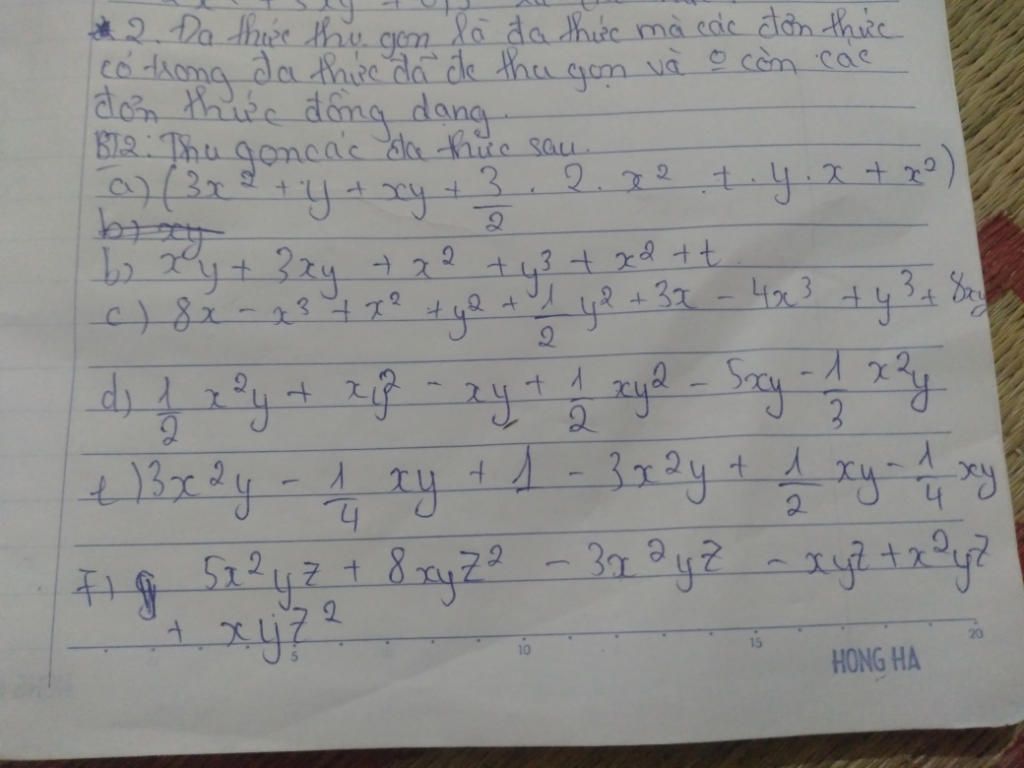 * 2. Đa thức thu gọn là đa thức mà các đơn thức
có trong đa thức đã đc thu gọn và o còn các
đơn thức đồng dạng.
BT2: Thu gọn các đa thức sau.
a) (3x² + y + xy + 3/2 . 2 . x² + . y . x + x²)
b) xy
b) xy + 3xy + x² + y³ + x² + t
c) 8x - x³ + x² + y² + 1/2 y² + 3x - 4x³ + y³ + 8xy
d) 1/2 x²y + xy² - xy + 1/2 xy² - 5xy - 1/3 x²y
e) 3x²y - 1/4 xy + 1 - 3x²y + 1/2 xy - 1/4 xy
F) 5x²yz + 8xyz² - 3x²yz - xyz + x²yz
+ xyz²
5 10 15 20
HONG HA